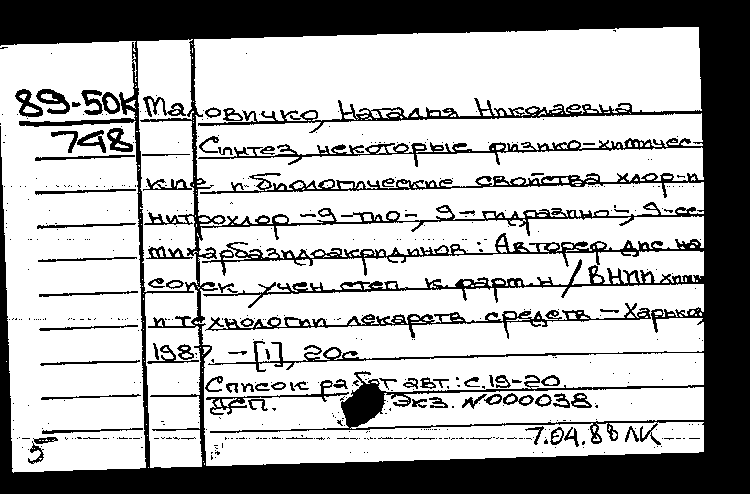 89-50К Маловичко, Наталья Николаевна
748
Синтез, некоторые физико-химичес-
кие и биологические свойства хлор-и
нитрохлор-9-тио-, 9-гидразино-, 9-се-
микарбазидоакридинов: Автореф. дис на
соиск. учен степ к. фарм. н / ВНИИ химии
и технологии лекарств. средств - Харьков,
1987. - [1], 20с
Список работ авт.: с.19-20.
ДСП. Экз. N000038.
7.04.88 ЛК
5